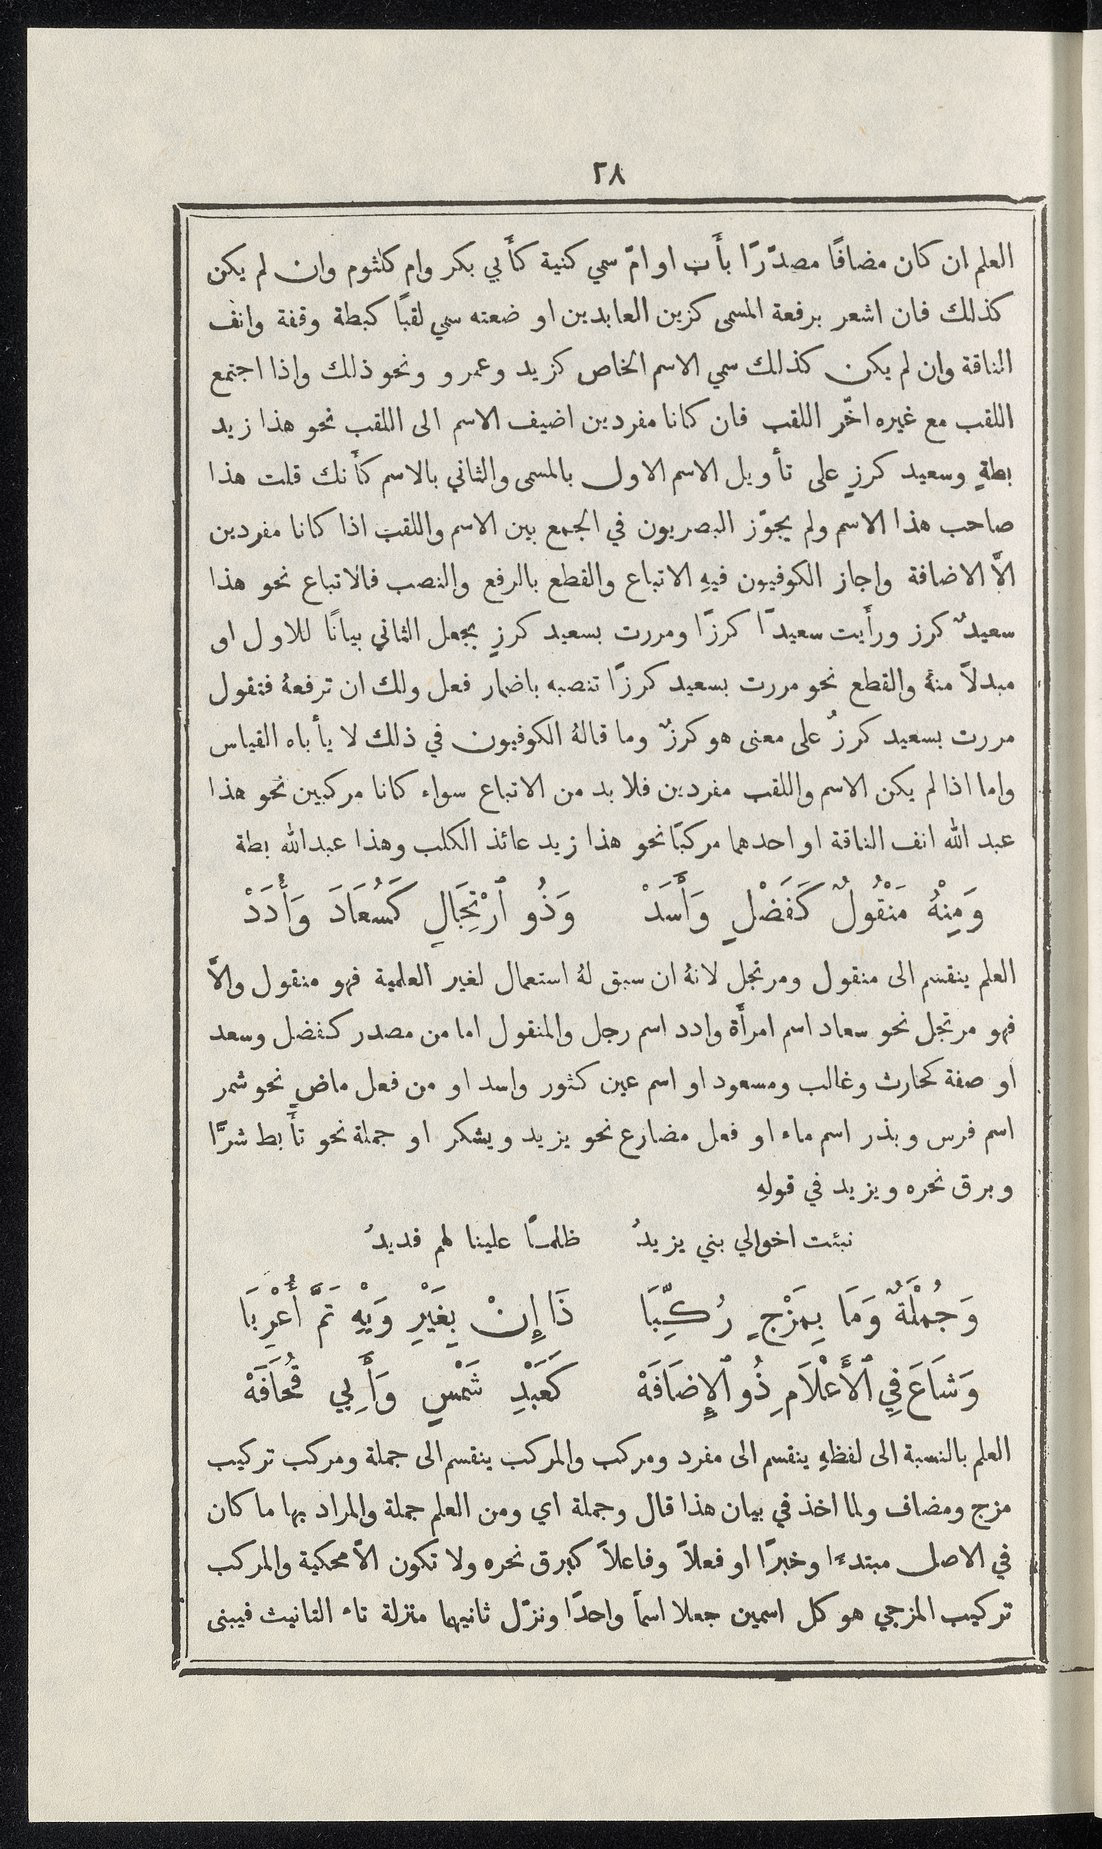 ٢٨
العلم ان كان مضافًا مصدّرًا بأَب او امّ سمي كنية كأَبي بكر وام كلثوم وان لم يكن
كذلك فان اشعر برفعة المسمى كزين العابدين او ضعته سمي لقبًا كبطة وقفة وانف
الناقة وان لم يكن كذلك سمي الاسم الخاص كزيد وعمرو ونحو ذلك واذا اجتمع
اللقب مع غيره اخّر اللقب فان كانا مفردين اضيف الاسم الى اللقب نحو هذا زيد
بطةٍ وسعيد كرزٍ على تأويل الاسم الاول بالمسمى والثاني بالاسم كأَنك قلت هذا
صاحب هذا الاسم ولم يجوّز البصريون في الجمع بين الاسم واللقب اذا كانا مفردين
الاَّ الاضافة واجاز الكوفيون فيهِ الاتباع والقطع بالرفع والنصب فالاتباع نحو هذا
سعيدٌ كرز ورأَيت سعيدًا كرزًا ومررت بسعيد كرزٍ بجعل الثاني بيانًا للاول او
مبدلاً منهُ والقطع نحو مررت بسعيد كرزًا تنصبه باضمار فعل ولك ان ترفعهُ فتقول
مررت بسعيد كرزٌ على معنى هو كرزٌ وما قالهُ الكوفيون في ذلك لا يأباه القياس
واما اذا لم يكن الاسم واللقب مفردين فلا بد من الاتباع سواء كانا مركبين نحو هذا
عبد الله انف الناقة او احدهما مركبًا نحو هذا زيد عائذ الكلب وهذا عبدالله بطة
وَمِنْهُ مَنْقُولٌ كَفَضْلٍ وَأَسَدْ وَذُو ٱرْتِجَالٍ كَسُعَادَ وَأُدَدْ
العلم ينقسم الى منقول ومرتجل لانهُ ان سبق لهُ استعمال لغير العلمية فهو منقول والاَّ
فهو مرتجل نحو سعاد اسم امرأَة وادد اسم رجل والمنقول اما من مصدر كفضل وسعد
او صفة كحارث وغالب ومسعود او اسم عين كثور واسد او من فعل ماضٍ نحو شمر
اسم فرس وبذر اسم ماء او فعل مضارع نحو يزيد ويشكر او جملة نحو تأَبط شرًّا
وبرق نحره ويزيد في قولهِ
نبئت اخوالي بني يزيدُ ظلمًا علينا لهم فديدُ
وَجُمْلَةٌ وَمَا بِمَزْجٍ رُكِّبَا ذَا إِنْ بِغَيْرِ وَيْهِ تَمَّ أُعْرِبَا
وَشَاعَ فِي ٱلْأَعْلَامِ ذُو ٱلْإِضَافَهْ كَعَبْدِ شَمْسٍ وَأَبِي قُحَافَهْ
العلم بالنسبة الى لفظهِ ينقسم الى مفرد ومركب والمركب ينقسم الى جملة ومركب تركيب
مزج ومضاف ولما اخذ في بيان هذا قال وجملة اي ومن العلم جملة والمراد بها ما كان
في الاصل مبتدءًا وخبرًا او فعلاً وفاعلاً كبرق نحره ولا تكون الاَّ محكية والمركب
تركيب المزجي هو كل اسمين جعلا اسمًا واحدًا ونزّل ثانيهما منزلة تاء التانيث فيبنى